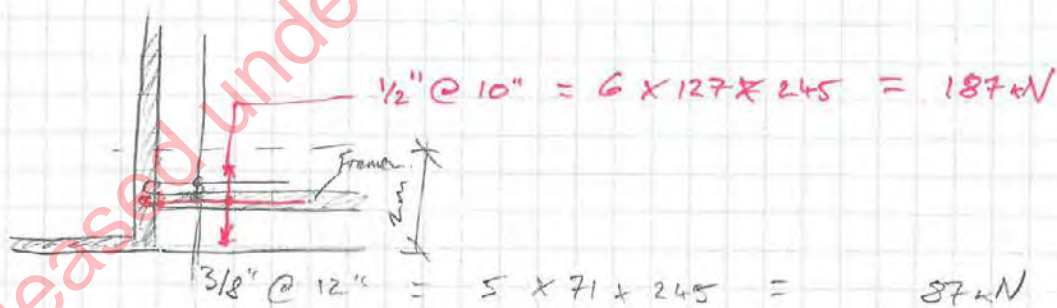 eased unde
1/2" @ 10" = 6 x 127 x 245 = 187 kN
Frame
2m
3/8" @ 12" = 5 x 71 x 245 = 87 kN